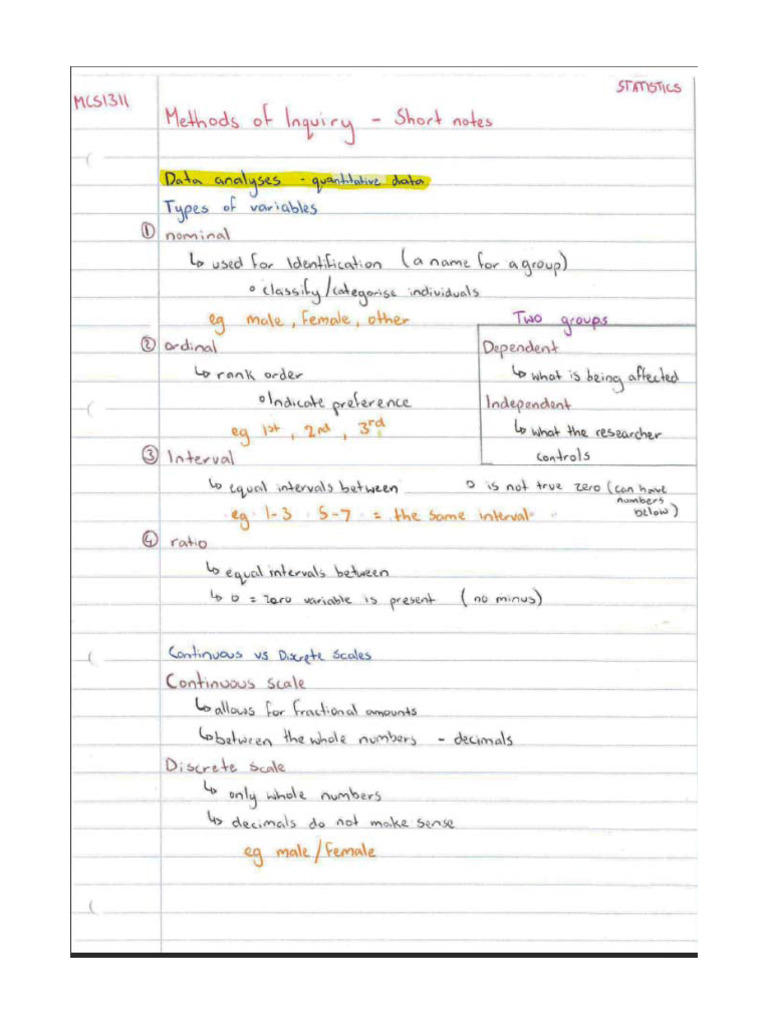 STATISTICS
MCS1311
Methods of Inquiry - Short notes
Data analyses - quantitative data
Types of variables
① nominal
↳ used for Identification (a name for a group)
○ classify/categorise individuals
eg male, female, other
Two groups
② ordinal
Dependent
↳ rank order
↳ what is being affected
○ Indicate preference
Independent
eg 1st, 2nd, 3rd
↳ what the researcher
controls
③ Interval
↳ equal intervals between
0 is not true zero (can have
numbers
below)
eg 1-3 5-7 = the same interval
④ ratio
↳ equal intervals between
↳ 0 = zero variable is present (no minus)
Continuous vs Discrete scales
Continuous scale
↳ allows for fractional amounts
↳ between the whole numbers - decimals
Discrete scale
↳ only whole numbers
↳ decimals do not make sense
eg male/female